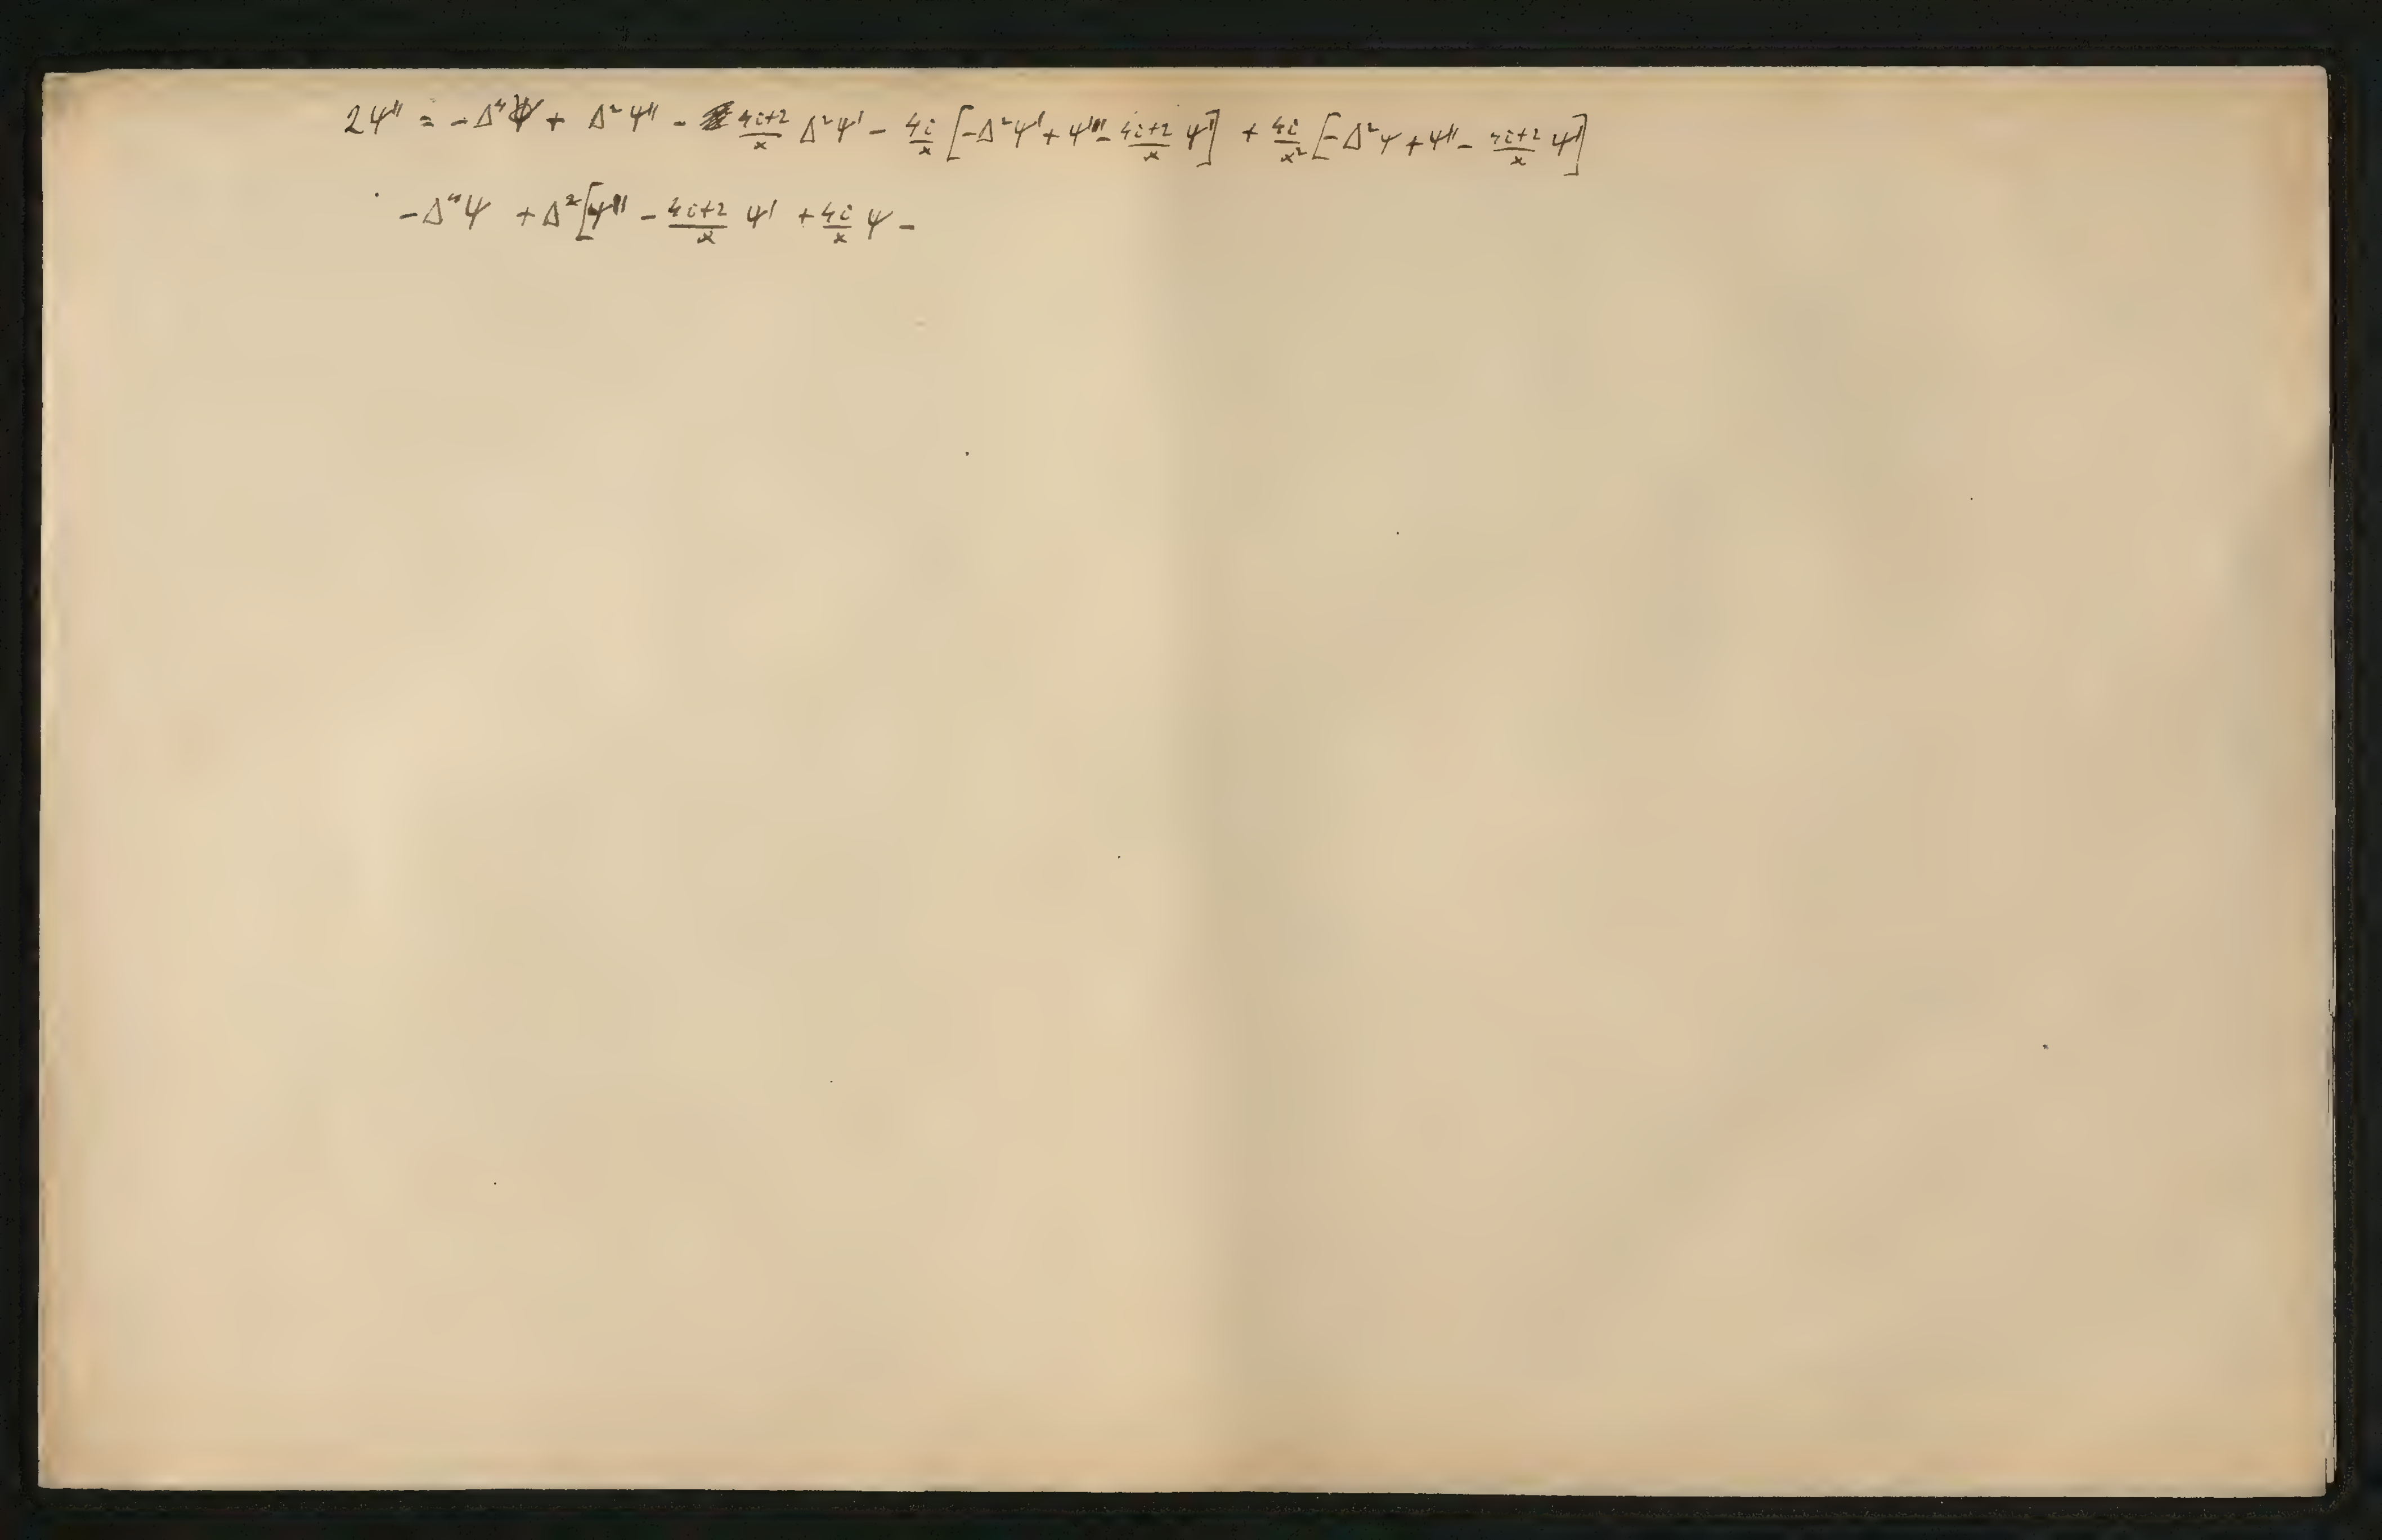 2ψ'' = -Δ⁴ψ + Δ²ψ'' - (4i+2)/x Δ²ψ' - 4i/x [-Δ²ψ' + ψ''' - (4i+2)/x ψ'] + 4i/x² [-Δ²ψ + ψ'' - (4i+2)/x ψ']
-Δ⁴ψ + Δ²[ψ'' - (4i+2)/x ψ' + 4i/x ψ -